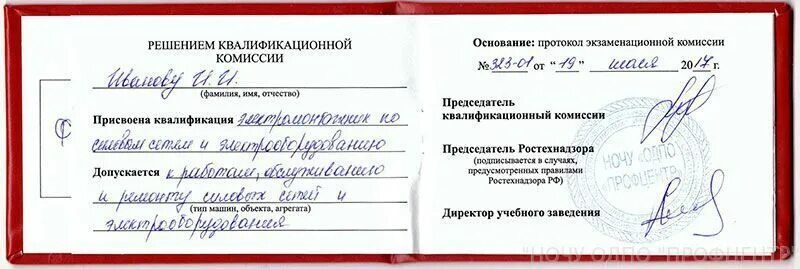 РЕШЕНИЕМ КВАЛИФИКАЦИОННОЙ
КОМИССИИ
Иванову И. И.
(фамилия, имя, отчество)
Присвоена квалификация электромонтажник по
силовым сетям и электрооборудованию
Допускается к работам, обслуживанию
и ремонту силовых сетей и
(тип машин, объекта, агрегата)
электрооборудования
Основание: протокол экзаменационной комиссии
№ 323-01 от "19" июля 2017 г.
Председатель
квалификационный комиссии
Председатель Ростехнадзора
(подписывается в случаях,
предусмотренных правилами
Ростехнадзора РФ)
Директор учебного заведения
НОЧУ «ОДПО
"ПРОФЦЕНТР"
"НОЧУ ОДПО "ПРОФЦЕНТР"